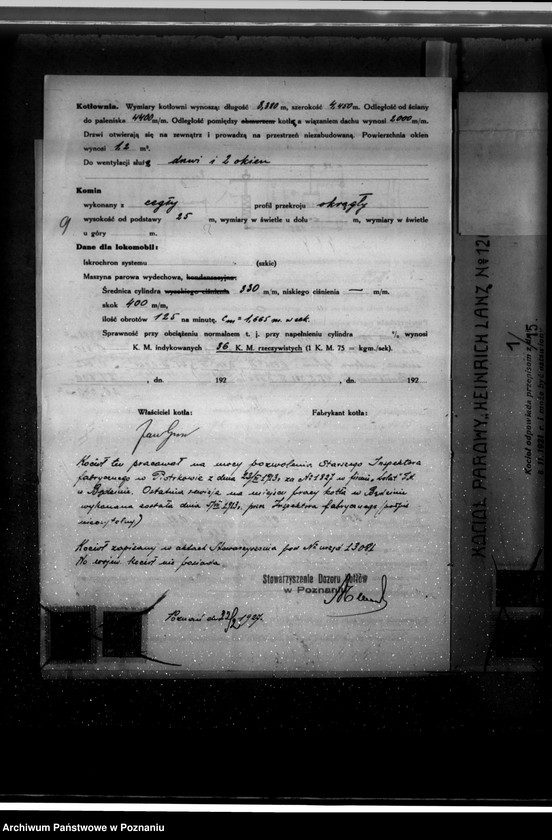 Kotłownia. Wymiary kotłowni wynoszą: długość 8,880 m, szerokość 4,450 m. Odległość od ściany
do paleniska 4400 m/m. Odległość pomiędzy obmurzem kotła a wiązaniem dachu wynosi 2000 m/m.
Drzwi otwierają się na zewnątrz i prowadzą na przestrzeń niezabudowaną. Powierzchnia okien
wynosi 1,2 m².
Do wentylacji służą drzwi i 2 okien
Komin
wykonany z cegły profil przekroju okrągły
9 wysokość od podstawy 25 m, wymiary w świetle u dołu m, wymiary w świetle
u góry m.
Dane dla lokomobil:
Iskrochron systemu (szkic)
Maszyna parowa wydechowa, kondensacyjna:
Średnica cylindra wysokiego ciśnienia 330 m/m, niskiego ciśnienia — m/m.
skok 400 m/m,
ilość obrotów 125 na minutę, = 1,665 m. w sek.
Sprawność przy obciążeniu normalnem t. j. przy napełnieniu cylindra %, wynosi
K. M. indykowanych 36 K. M. rzeczywistych (1 K. M. 75 = kgm./sek).
, dn. 192 , dn. 192
Właściciel kotła: Fabrykant kotła:
Kocioł ten pracował na mocy pozwolenia Starszego Inspektora
fabrycznego w Piotrkowie z dnia 1913r. za No 1827 w firmie
w Będzinie. Ostatnia rewizja na miejscu pracy kotła w Będzinie
wykonana została dnia 1923r. przez Inspektora fabrycznego (podpis
nieczytelny)
Kocioł zapisany w aktach Stowarzyszenia pod No urzęd 23081
No wojew. kocioł nie posiada.
Stowarzyszenie Dozoru Kotłów
w Poznaniu
Poznań dn 1927r.
KOCIOŁ PAROWY „HEINRICH LANZ" No 126
1/15.
Kocioł odpowiada przepisom z dn.
9. 11. 1921 r. i może być ustawiony
Archiwum Państwowe w Poznaniu